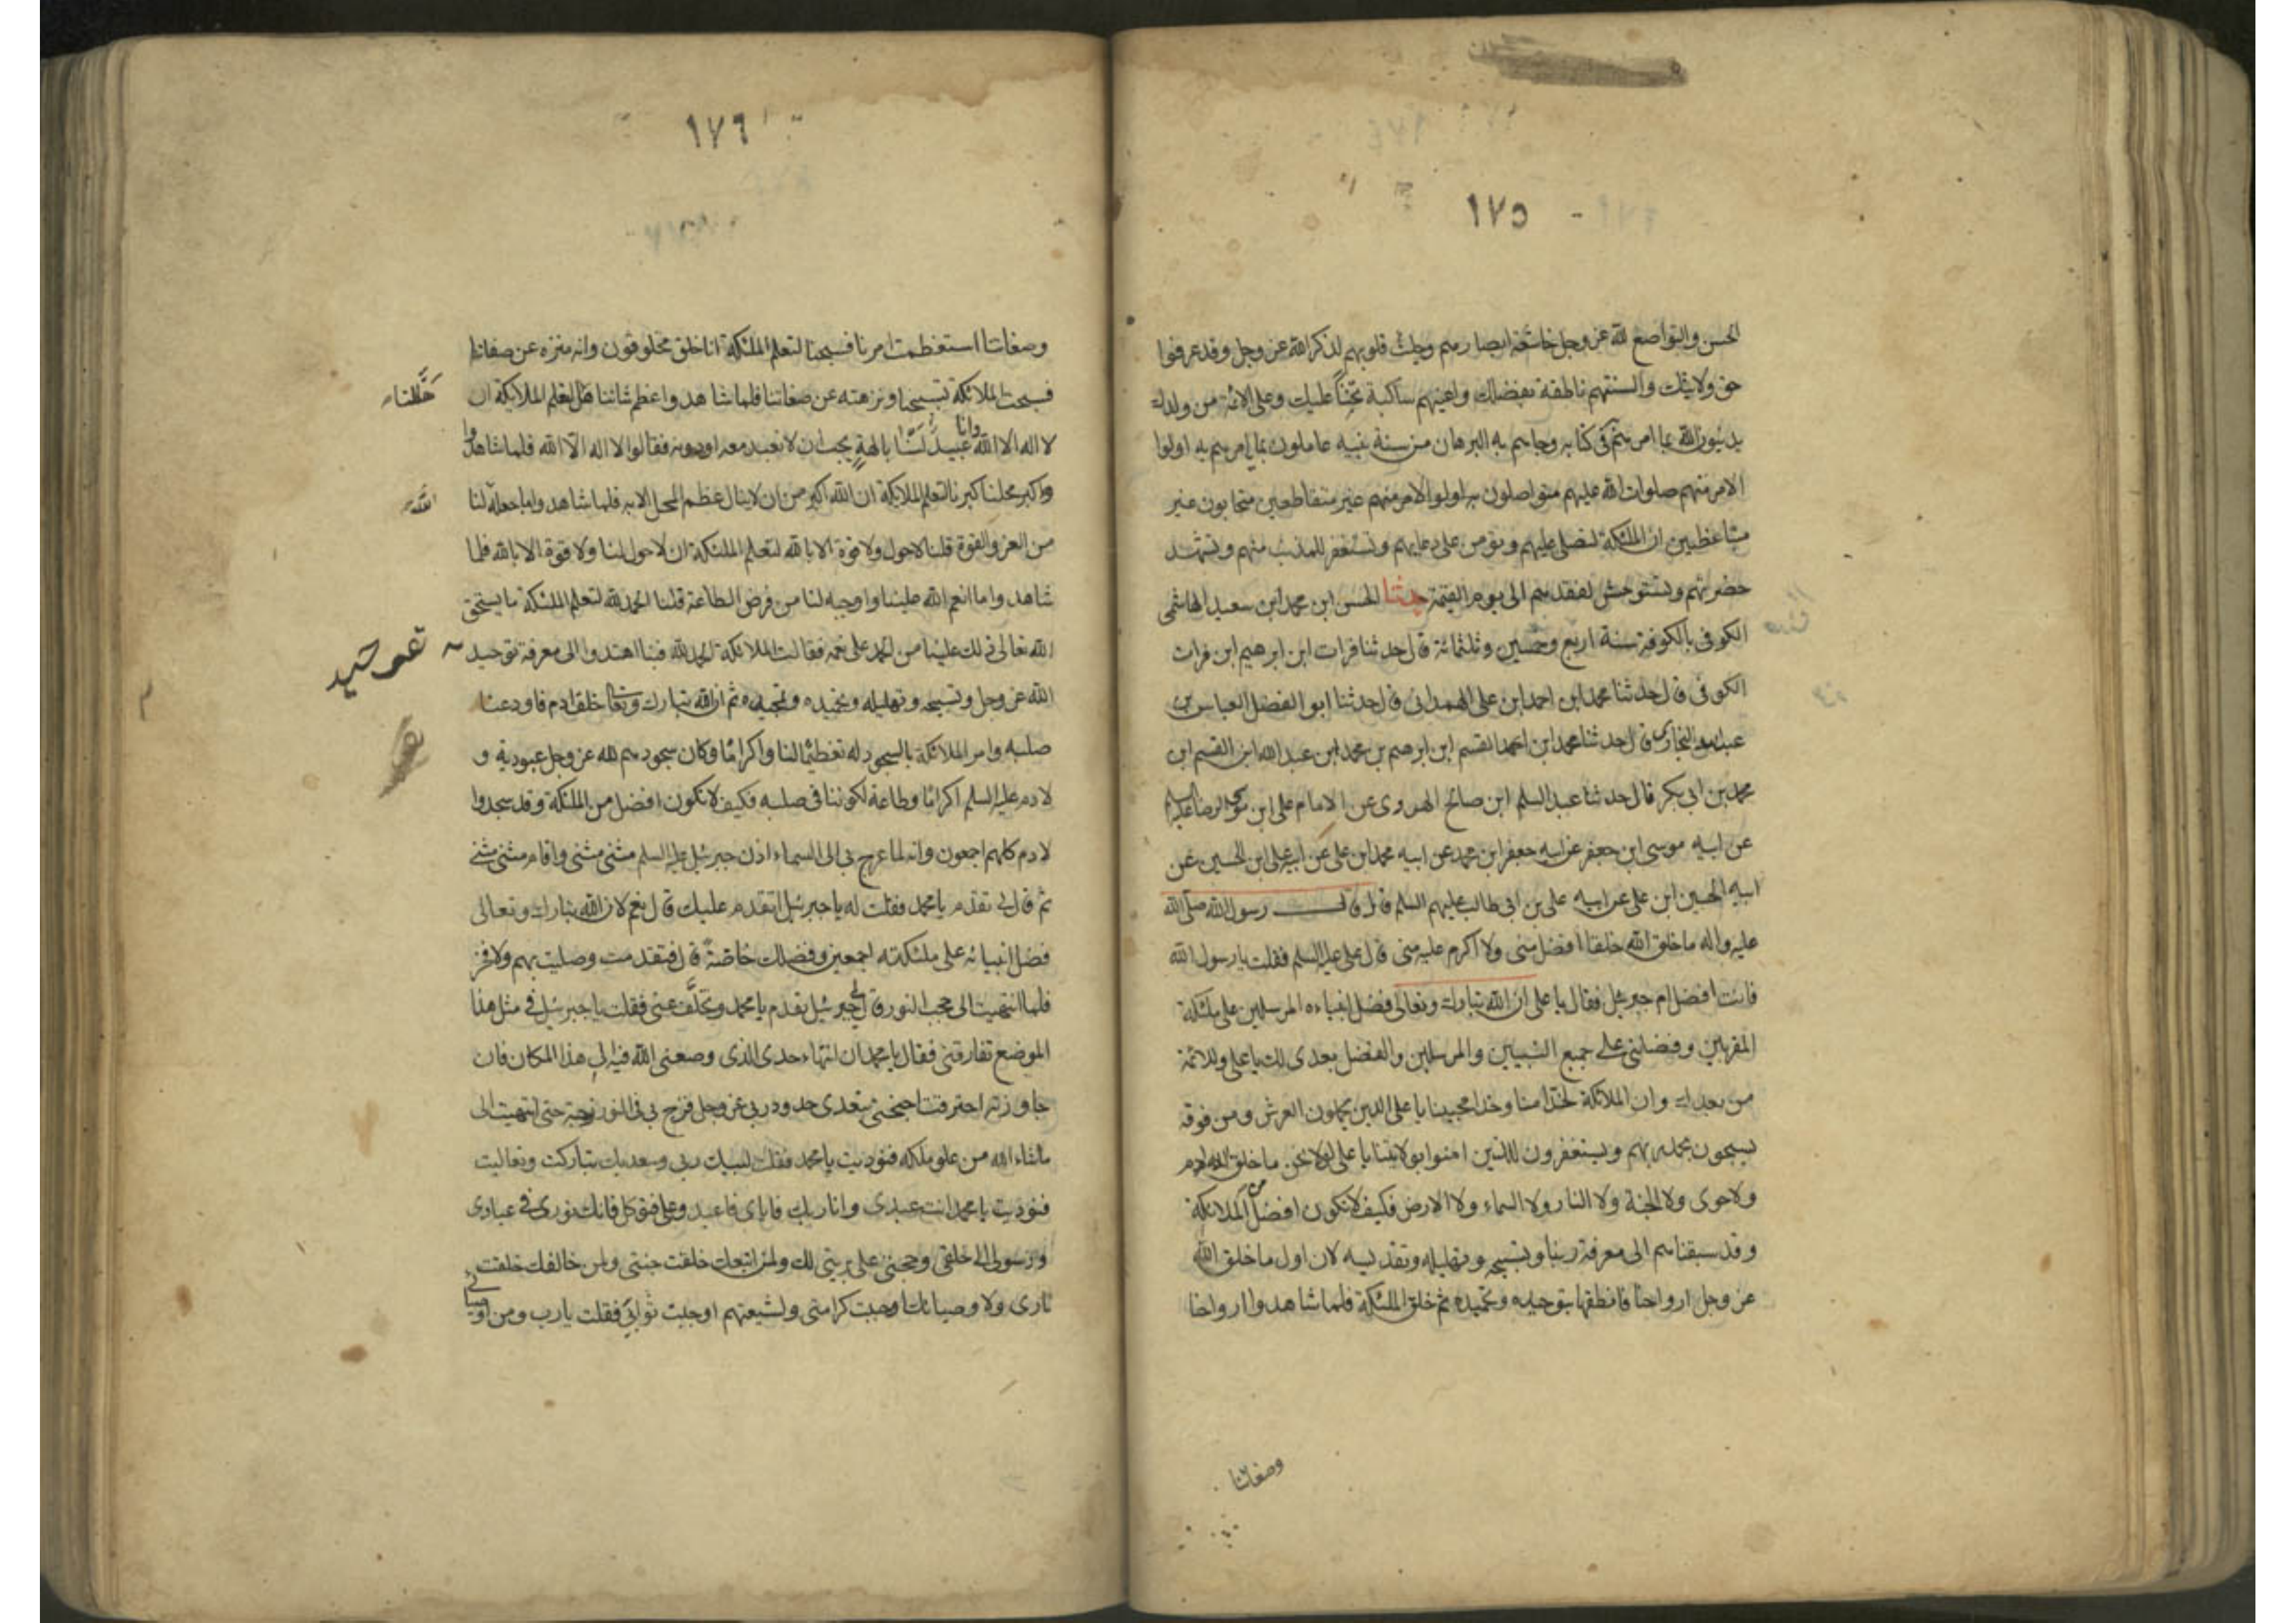 ١٧٥
الحسن والتواضع لله عز وجل خاشعة ابصارهم وجلت قلوبهم لذكر الله عز وجل وقد عرفوا
حق ولايتك والسنتهم ناطقة بفضلك واعينهم ساكبة تحننا عليك وعلى الائمة من ولدك
يدينون الله بما امرهم في كتابه وجاءهم به البرهان من سنة نبيه عاملون بما يامرهم به اولوا
الامر منهم صلوات الله عليهم متواصلون به اولوا الامر منهم غير متقاطعين متحابون غير
متباغظين ان الملئكة لتصلى عليهم وتؤمن على دعايهم وتستغفر للمذنب منهم وتشهد
حضرتهم وتستوحش لفقدهم الى يوم القيمة حدثنا الحسن ابن محمد ابن سعيد الهاشمى
الكوفى بالكوفة سنة اربع وخمسين وثلثمائة قال حدثنا فرات ابن ابرهيم ابن فرات
الكوفى قال حدثنا محمد ابن احمد ابن على الهمدانى قال حدثنا ابو الفضل العباس بن
عبد الله البخارى قال حدثنا محمد ابن احمد القسم ابن ابرهيم بن محمد ابن عبد الله ابن القسم ابن
محمد بن ابى بكر قال حدثنا عبد السلم ابن صالح الهروى عن الامام على ابن موسى الرضا عليه السلم
عن ابيه موسى ابن جعفر عن ابيه جعفر ابن محمد عن ابيه محمد ابن على عن ابيه على ابن الحسين عن
ابيه الحسين ابن على عن ابيه على بن ابى طالب عليهم السلم قال قال رسول الله صلى الله
عليه واله ما خلق الله خلقا افضل منى ولا اكرم عليه منى قال على عليه السلم فقلت يا رسول الله
فانت افضل ام جبرئيل فقال يا على ان الله تبارك وتعالى فضل انبياءه المرسلين على ملئكته
المقربين وفضلنى على جميع النبيين والمرسلين والفضل بعدى لك يا على وللائمة
من بعدك وان الملائكة لخدامنا وخدام محبينا يا على الذين يحملون العرش ومن فوقه
يسبحون بحمد ربهم ويستغفرون للذين امنوا بولايتنا يا على لولا نحن ما خلق الله ادم
ولا حوى ولا الجنة ولا النار ولا السماء ولا الارض فكيف لا نكون افضل من الملائكة
وقد سبقناهم الى معرفة ربنا وتسبيحه وتهليله وتقديسه لان اول ما خلق الله
عز وجل ارواحنا فانطقها بتوحيده وتحميده ثم خلق الملئكة فلما شاهدوا ارواحنا
وصفاتنا
١٧٦
وصفاتنا استعظمت امرنا فسبحنا لتعلم الملئكة انا خلق مخلوقون وانه منزه عن صفاتنا
فسبحت الملائكة بتسبيحنا ونزهته عن صفاتنا فلما شاهدوا عظم شاننا هللنا لتعلم الملائكة ان
هللنا
لا اله الا الله وانا عبيد لسنا بالهة يجب ان لا نعبد معه او دونه فقالوا لا اله الا الله فلما شاهدوا
واكبر محلنا كبرنا لتعلم الملائكة ان الله اكبر من ان لا ينال عظم المحل الا به فلما شاهدوا ما جعله لنا
الله
من العز والقوة قلنا لا حول ولا قوة الا بالله لتعلم الملئكة ان لا حول لنا ولا قوة الا بالله فلما
شاهدوا ما انعم الله علينا واوجبه لنا من فرض الطاعة قلنا الحمد لله لتعلم الملئكة ما يستحق
الله تعالى ذلك علينا من الحمد على نعمه فقالت الملائكة الحمد لله فبنا اهتدوا الى معرفة توحيد
الله عز وجل وتسبيحه وتهليله وتحميده وتمجيده ثم ان الله تبارك وتعالى خلق ادم فاودعنا
صلبه وامر الملائكة بالسجود له تعظيما لنا واكراما وكان سجودهم لله عز وجل عبودية و
لادم عليه السلم اكراما وطاعة لكوننا فى صلبه فكيف لا نكون افضل من الملئكة وقد سجدوا
لادم كلهم اجمعون وانه لما عرج بى الى السماء اذن جبرئيل عليه السلم مثنى مثنى واقام مثنى مثنى
ثم قال لى تقدم يا محمد فقلت له يا جبرئيل اتقدم عليك قال نعم لان الله تبارك وتعالى
فضل انبيائه على ملئكته اجمعين وفضلك خاصة قال فتقدمت وصليت بهم ولا فخر
فلما انتهيت الى حجب النور قال لى جبرئيل تقدم يا محمد وتخلف عنى فقلت يا جبرئيل فى مثل هذا
الموضع تفارقنى فقال يا محمد ان انتهاء حدى الذى وضعنى الله فيه الى هذا المكان فان
جاوزته احترقت اجنحتى بتعدى حدود ربى عز وجل فزج بى فى النور زجة حتى انتهيت الى
ما شاء الله من علو ملكه فنوديت يا محمد فقلت لبيك ربى وسعديك تباركت وتعاليت
فنوديت يا محمد انت عبدى وانا ربك فاياى فاعبد وعلى فتوكل فانك نورى فى عبادى
ورسولى الى خلقى وحجتى على بريتى لك ولمن اتبعك خلقت جنتى ولمن خالفك خلقت
نارى ولاوصيائك اوجبت كرامتى ولشيعتهم اوجبت ثوابى فقلت يا رب ومن اوصيائى